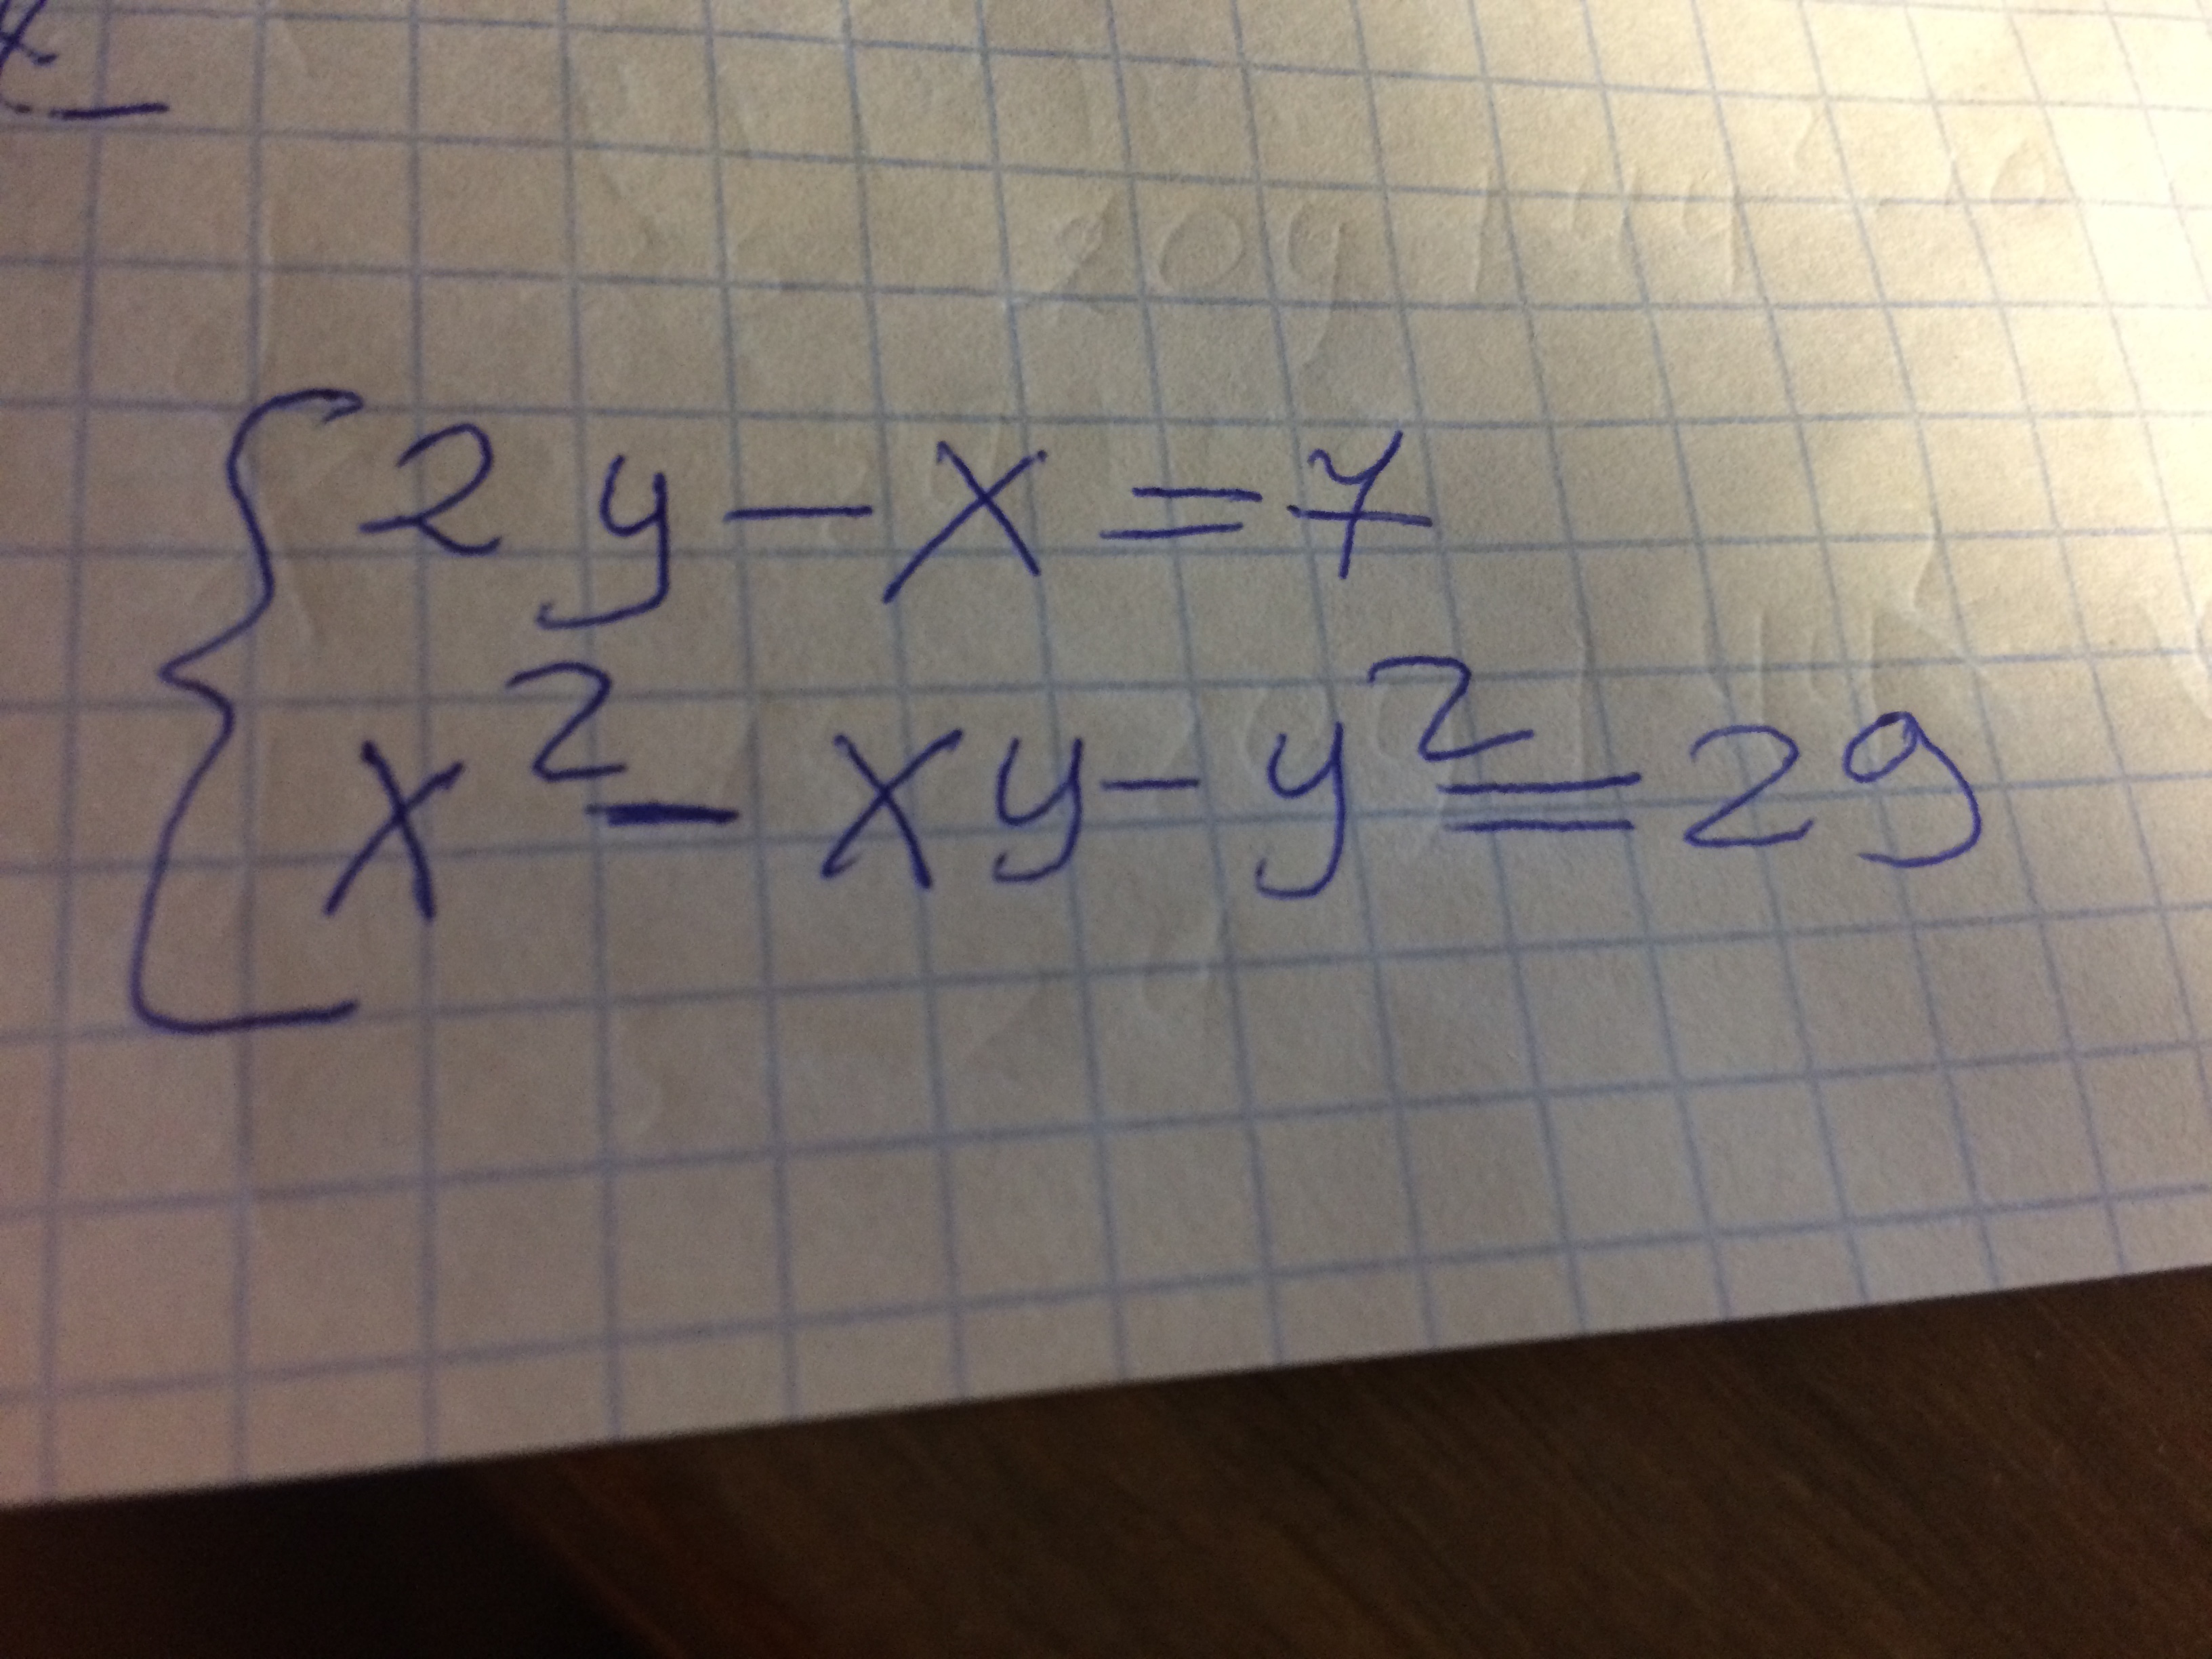 2y - x = 7
x² - xy - y² = 29